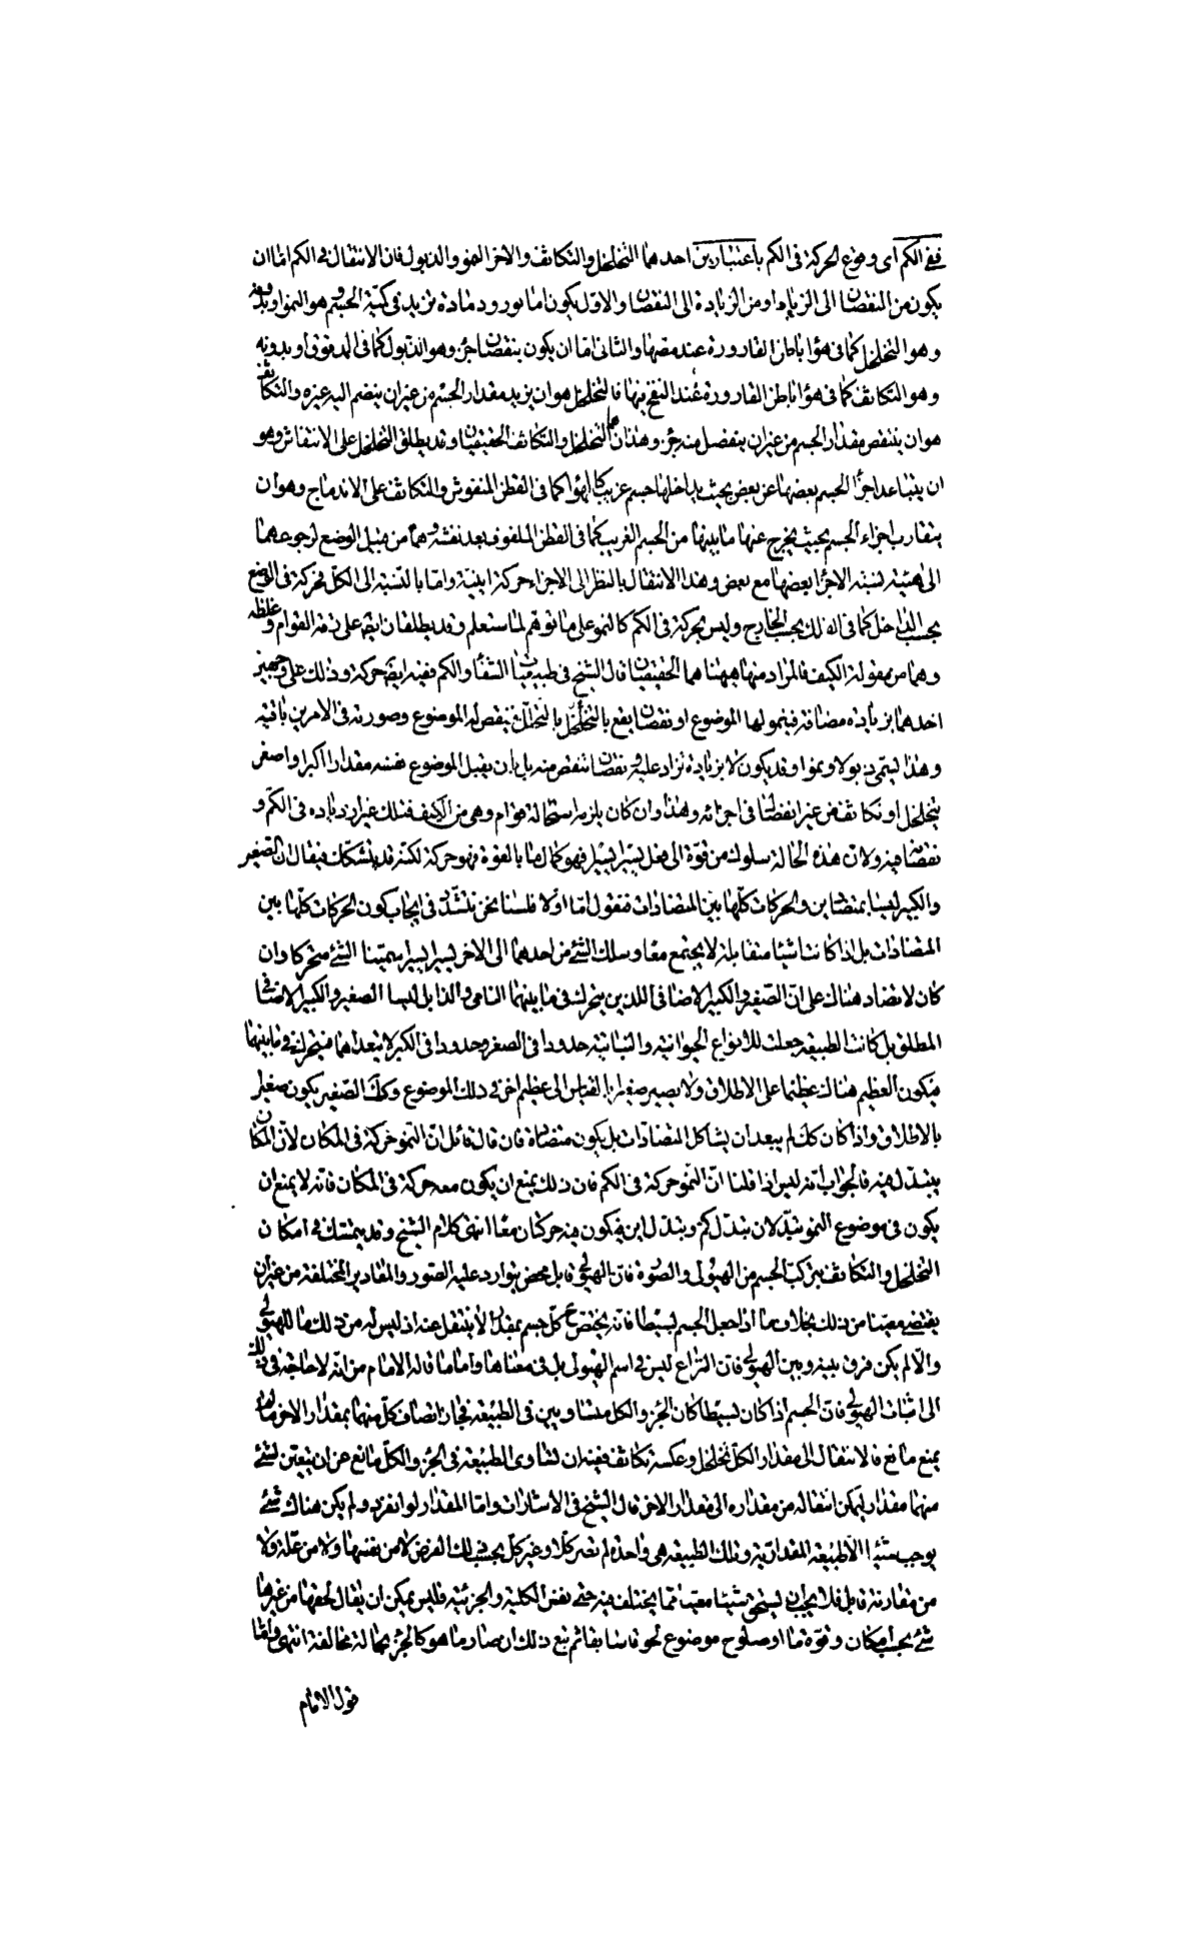 ففي الكم اى وقوع الحركة فى الكم باعتبارين احدهما التخلخل والتكاثف والاخر النمو والذبول فان الانتقال فى الكم اما ان
يكون من النقصان الى الزيادة او من الزيادة الى النقصان والاول يكون اما بورود مادة تزيد فى كمية الجسم وهو النمو او بدونه
وهو التخلخل كما فى هواء باطن القارورة عند مصها والثانى اما ان يكون بنقصان جزء وهو الذبول كما فى المدقوق او بدونه
وهو التكاثف كما فى هواء باطن القارورة عند النفخ فيها فالتخلخل هو ان يزيد مقدار الجسم من غير ان ينضم اليه غيره والتكاثف
هو ان ينتقص مقدار الجسم من غير ان ينفصل منه جزء وهذان هما التخلخل والتكاثف الحقيقيان وقد يطلق التخلخل على الانتفاش وهو
ان يتباعد اجزاء الجسم بعضها عن بعض بحيث يداخلها جسم غريب كالهواء كما فى القطن المنفوش والتكاثف على الاندماج وهو ان
يتقارب اجزاء الجسم بحيث يخرج عنها ما بينها من الجسم الغريب كما فى القطن الملفوف بعد نفشه وهما من قبيل الوضع لرجوعهما
الى هيئة نسبة الاجزاء بعضها مع بعض وهذا الانتقال بالنظر الى الاجزاء حركة اينية واما بالنسبة الى الكل فحركة فى الوضع
بحسب الداخل كما فى الفلك بحسب الخارج وليس بحركة فى الكم كالنمو على ما توهم لما ستعلم وقد يطلقان ايضا على رقة القوام وغلظه
وهما من مقولة الكيف فالمراد منها ههنا هما الحقيقيان قال الشيخ فى طبيعيات الشفاء والكم ففيه ايضا حركة وذلك على وجهين
احدهما بزيادة مضافة فينمو لها الموضوع او نقصان يقع بالتحلل ينقص له الموضوع وصورته فى الامرين باقية
وهذا يسمى ذبولا ونموا وقد يكون لا بزيادة تزاد عليه ونقصان تنقص منه بل بان يقبل الموضوع نفسه مقدارا اكبر او اصغر
بتخلخل او تكاثف من غير انفصال فى اجزائه وهذا وان كان يلزمه استحالة قوام وهى من الكيف فتلك غير ازدياده فى الكم و
نقصانه فيه ولان هذه الحالة سلوك من قوة الى فعل يسيرا يسيرا فهو كمال ما بالقوة فهو حركة لكنه قد يتشكك فيقال ان الصغير
والكبير ليسا بمتضادين والحركات كلها بين المتضادات فنقول اما اولا فلسنا نحن نتشدد فى ايجاب كون الحركات كلها بين
المتضادات بل اذا كانت اشياء متقابلة لا يجتمع معا وسلك الشئ من احدهما الى الاخر يسيرا يسيرا سمينا الشئ متحركا وان
كان لا تضاد هناك على ان الصغير والكبير الاضافى اللذين يتحرك فى ما بينهما النامى والذابل ليسا الصغير والكبير الاضافى
المطلق بل كانت الطبيعة جعلت للانواع الحيوانية والنباتية حدودا فى الصغر وحدودا فى الكبر لا تتعداهما فيتحرك فى ما بينهما
فيكون العظيم هناك عظيما على الاطلاق ولا يصير صغيرا بالقياس الى عظيم اخر فى ذلك الموضوع وكك الصغير يكون صغيرا
بالاطلاق واذا كان كك لم يبعد ان يشاكل المتضادات بل يكون متضادة فان قال قائل ان النمو حركة فى المكان لان المكان
يتبدل فيه فالجواب انه ليس اذا قلنا ان النمو حركة فى الكم فان ذلك يمنع ان يكون معه حركة فى المكان فانه لا يمنع ان
يكون فى موضوع النمو تبدلان تبدل كم وتبدل اين فيكون فيه حركتان معا انتهى كلام الشيخ وقد يتمسك فى امكان
التخلخل والتكاثف بتركب الجسم من الهيولى والصورة فان الهيولى قابل محض يتوارد عليه الصور والمقادير المختلفة من غير ان
يقتضى معينا من ذلك بخلاف ما اذا جعل الجسم بسيطا فانه يختص كل جسم بمقدار لا ينتقل عنه اذ ليس له من ذلك ما للهيولى
والا لم يكن فرق بينه وبين الهيولى فان النزاع ليس فى اسم الهيولى بل فى معناها واما ما قاله الامام من انه لا حاجة فى ذلك
الى اثبات الهيولى فان الجسم اذا كان بسيطا كان الجزء والكل متساويين فى الطبيعة فجاز اتصاف كل منهما بمقدار الاخر ما لم
يمنع مانع فالانتقال الى مقدار الكل تخلخل وعكسه تكاثف ففيه ان تساوى الطبيعة فى الجزء والكل مانع عن ان يتعين لشئ
منهما مقدار ليمكن انتقاله من مقداره الى مقدار الاخر قال الشيخ فى الاشارات واما المقدار لو انفرد ولم يكن هناك شئ
يوجب شيئا الا طبيعة المقدارية وتلك الطبيعة هى واحدة لم تصر كلا وغير كل بحسب ذلك الفرض لا من نفسها ولا من علة ولا
من مقارنة قابل فلا يجب ان يستحق شيئا معينا مما يختلف فيه حتى نفس الكلية والجزئية فليس يمكن ان يقال لحقها من غيرها
شئ بحسب امكان وقوة ما او صلوح موضوع لحوقا سابقا ثم تبع ذلك ان صار ما هو كالجزء بحالة مخالفة انتهى واما
قول الامام